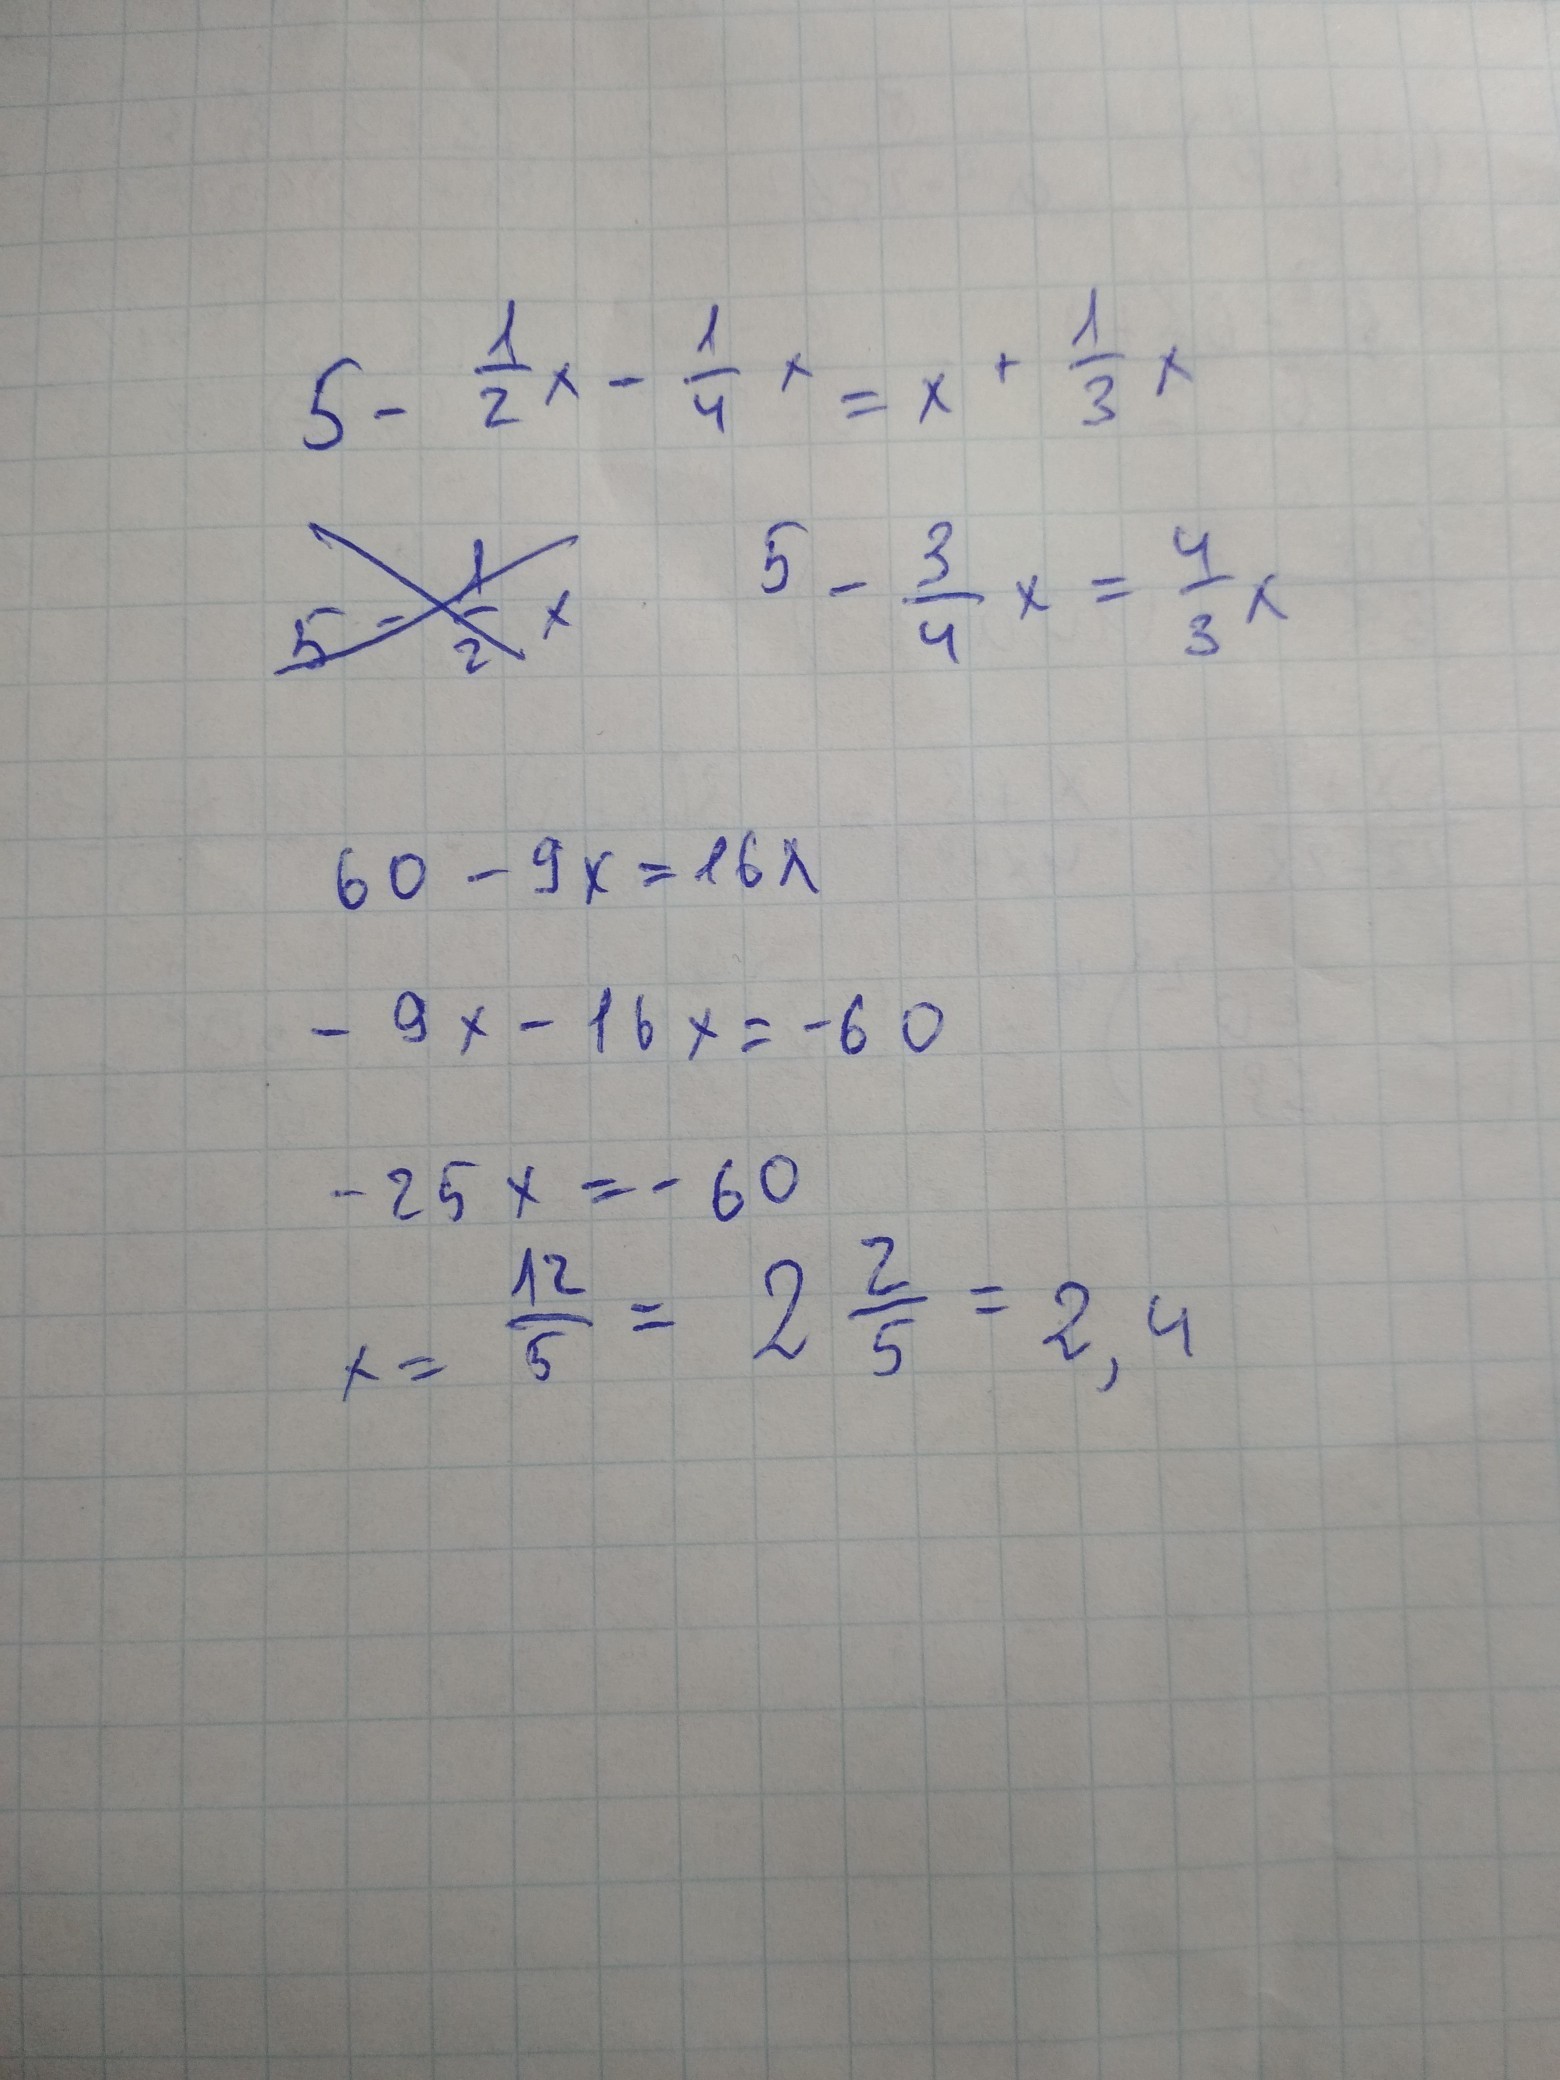 5 - 1/2 x - 1/4 x = x + 1/3 x
5 - 1/2 x
5 - 3/4 x = 4/3 x
60 - 9x = 16x
- 9x - 16x = -60
-25x = -60
x = 12/5 = 2 2/5 = 2,4